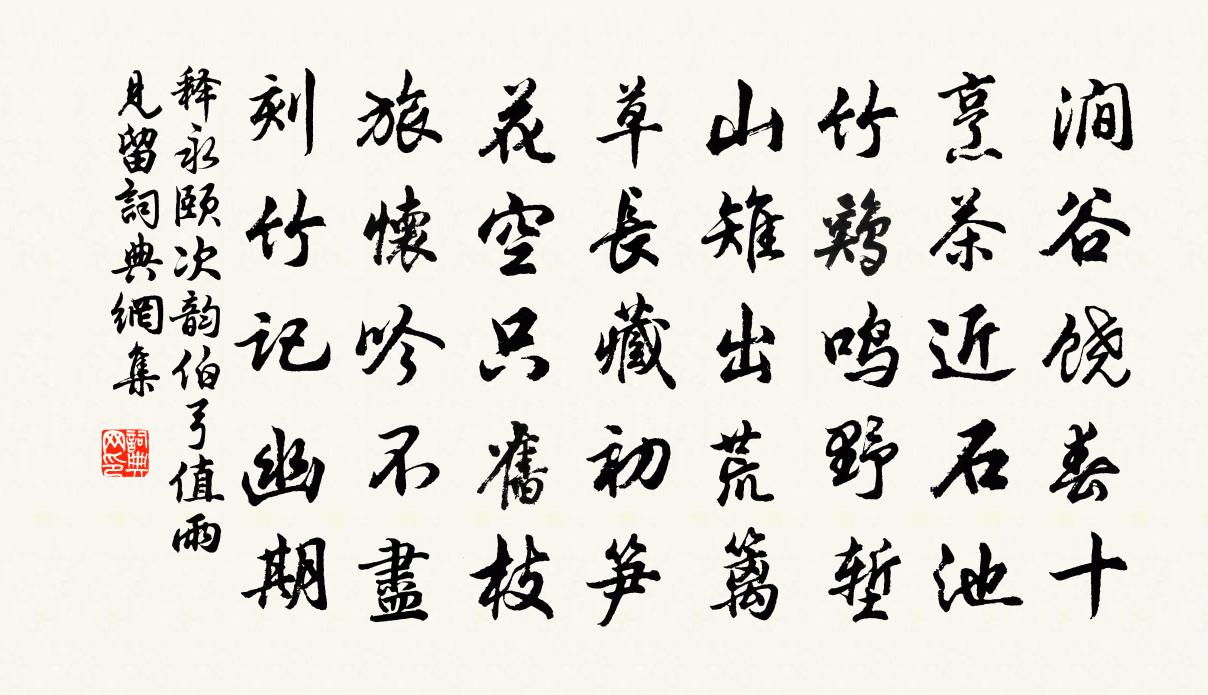 澗谷饶春十
烹茶近石池
竹鷄鸣野堑
山雉出荒篱
草長藏初笋
花空只舊枝
旅懷吟不盡
刻竹记幽期
释永颐次韵伯弓值雨
見留詞典網集
詞典网印